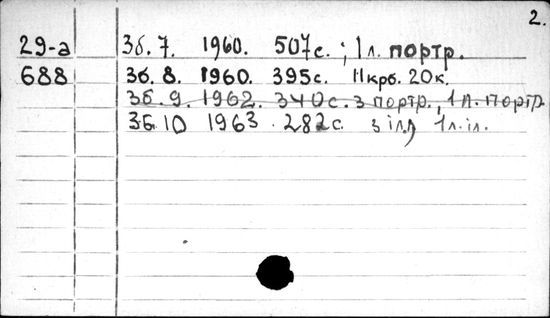 2.
29-а Зб. 7. 1960. 507с.; 1л. портр.
688 Зб. 8. 1960. 395с. 11крб. 20к.
Зб. 9. 1962. 340с. з портр., 1л. портр.
Зб. 10 1963. 282с. з іл, 1л. іл.